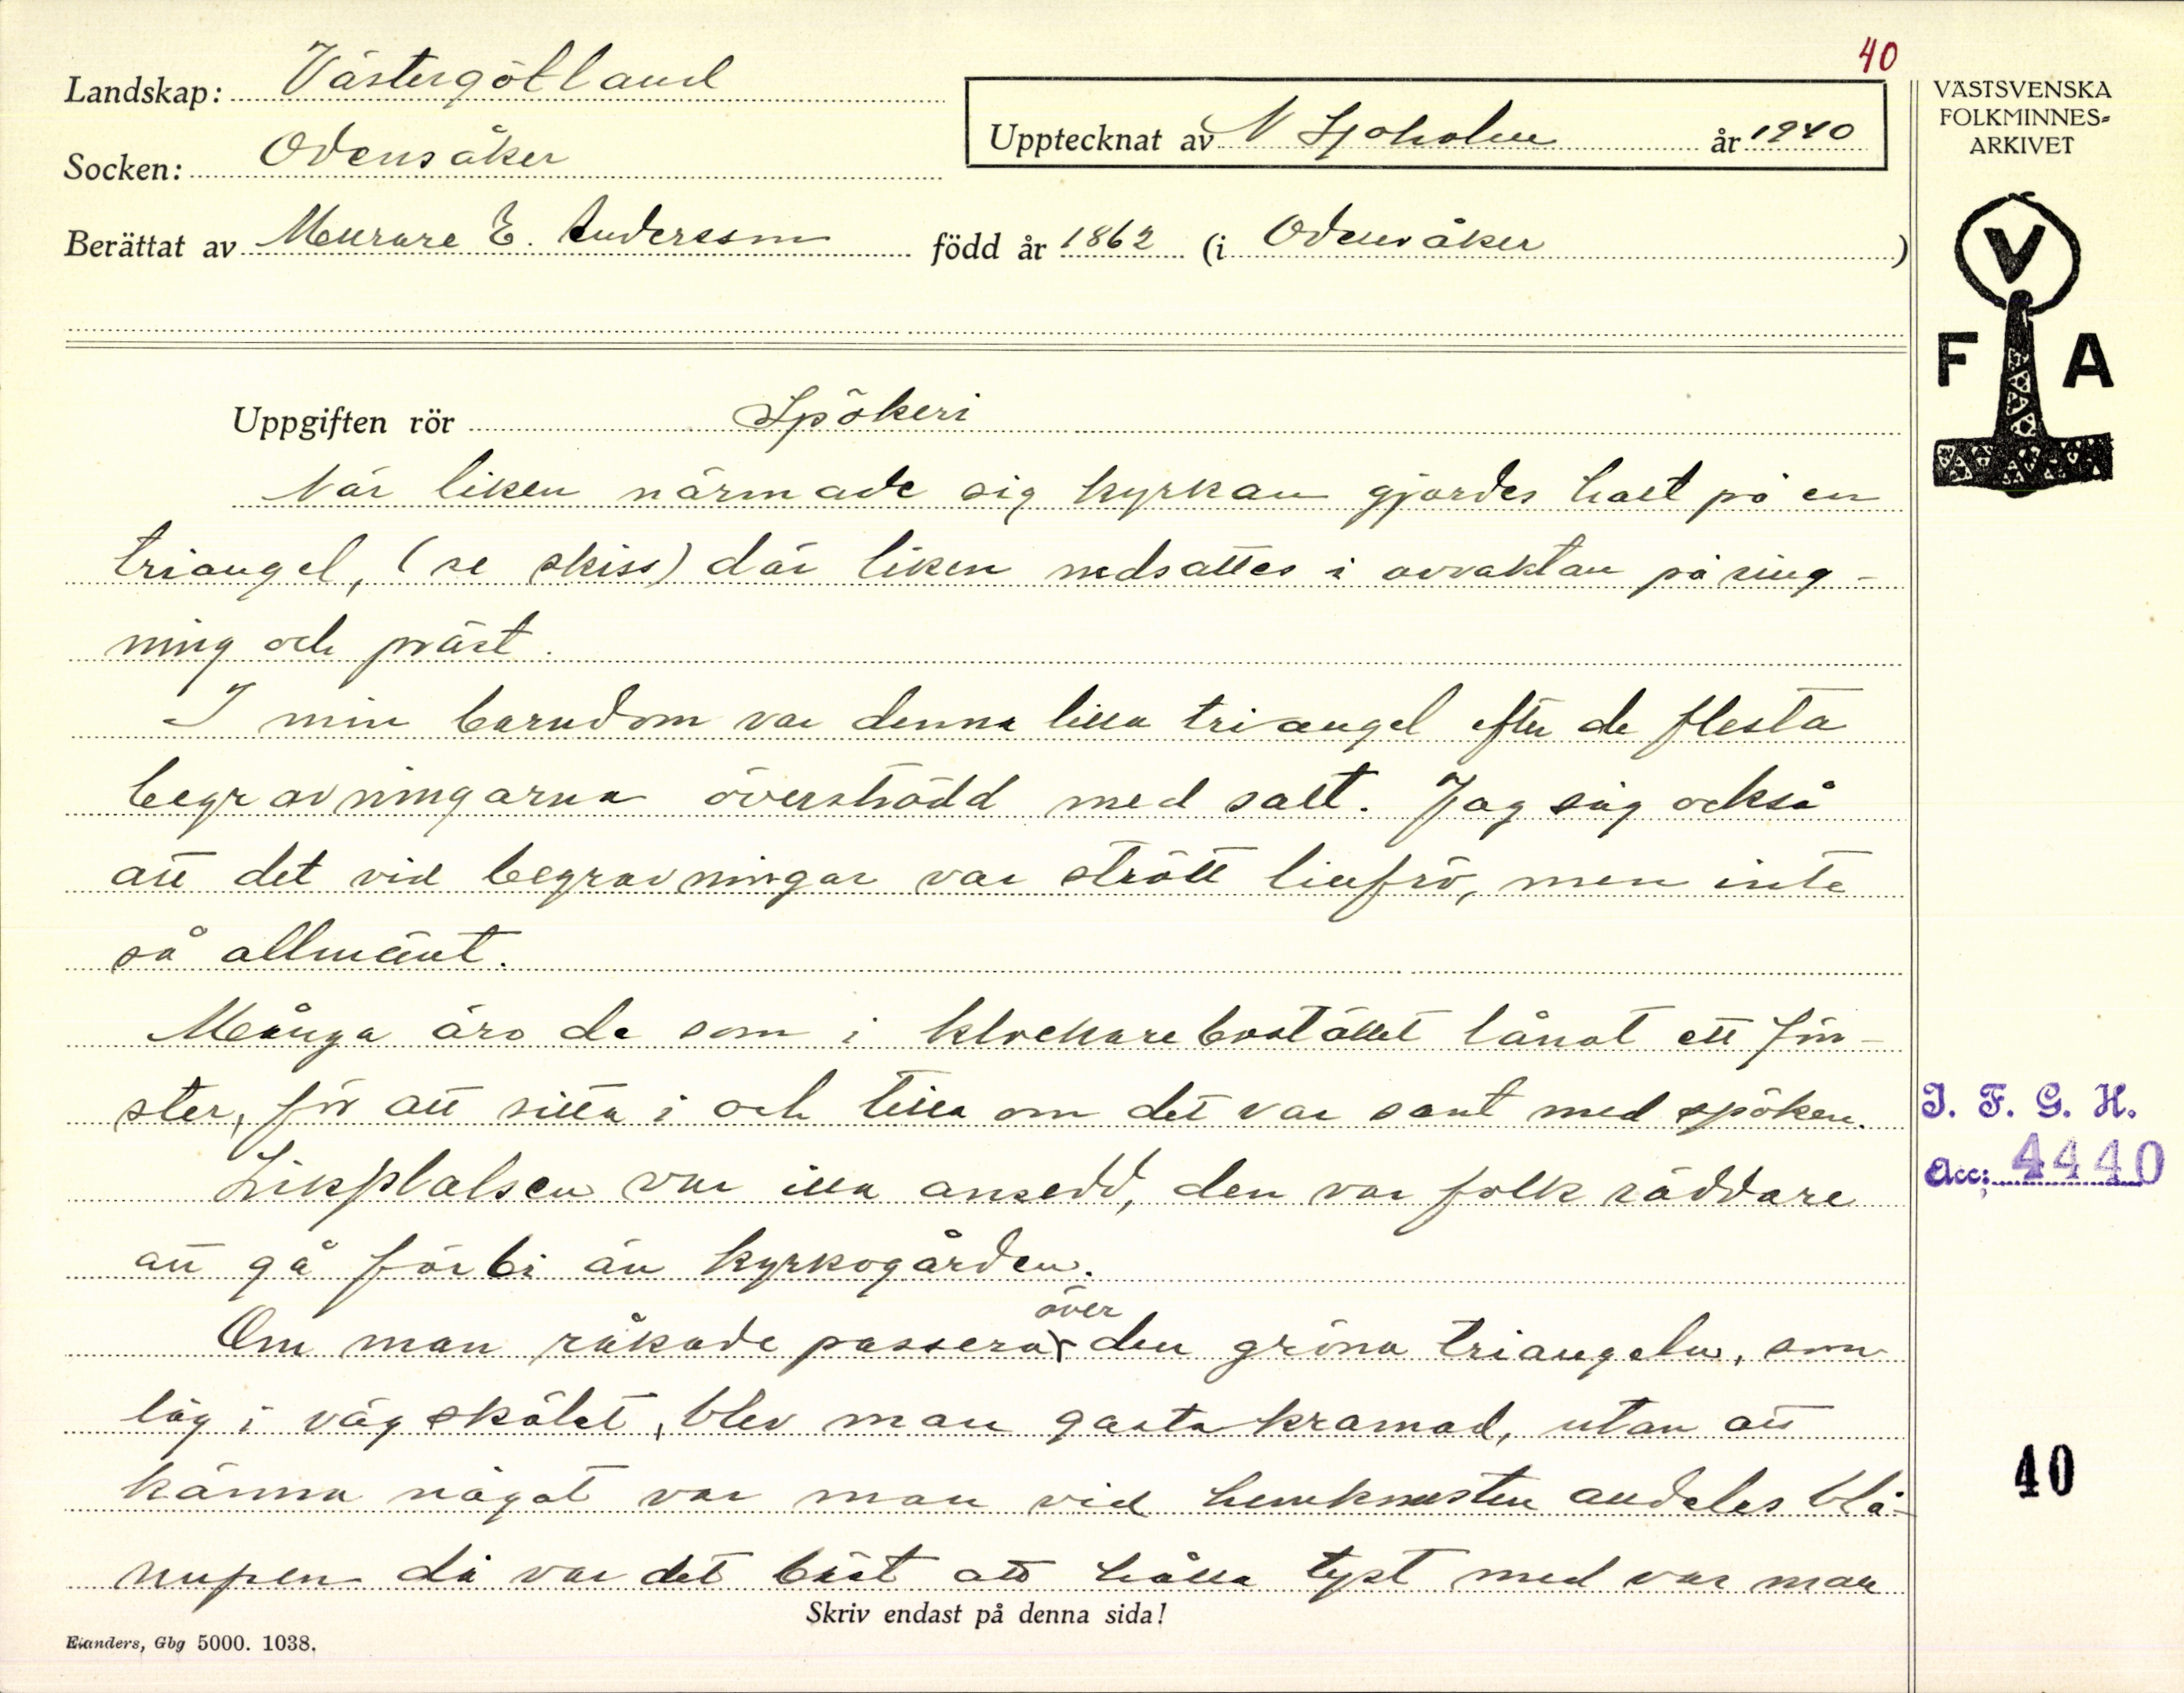 40
Landskap: Västergötland
Socken: Odensåker
Upptecknat av N Sjöholm år 1940
Berättat av Murare E. Andersson född år 1862 (i Odensåker)
VÄSTSVENSKA
FOLKMINNES=
ARKIVET
V
F A
Uppgiften rör Spökeri
När liken närmade sig kyrkan gjordes halt på en
triangel, (se skiss) där liken nedsattes i avvaktan på ring-
ning och präst.
I min barndom var denna lilla triangel efter de flesta
begravningarna överströdd med salt. Jag såg också
att det vid begravningar var strött linfrö, men inte
så allmänt.
Många äro de som i klockarebostället lånat ett fön-
ster, för att sitta i och titta om det var sant med spöken.
Likplatsen var illa ansedd, den var folk räddare
att gå förbi än kyrkogården.
Om man råkade passera över den gröna triangeln, som
låg i vägskälet, blev man gastakramad, utan att
känna något var man vid hemkomsten andeles blå-
nupen då var det bäst att hålla tyst med var man
I. F. G. H.
Acc: 4440
40
Skriv endast på denna sida!
Elanders, Gbg 5000. 1038.